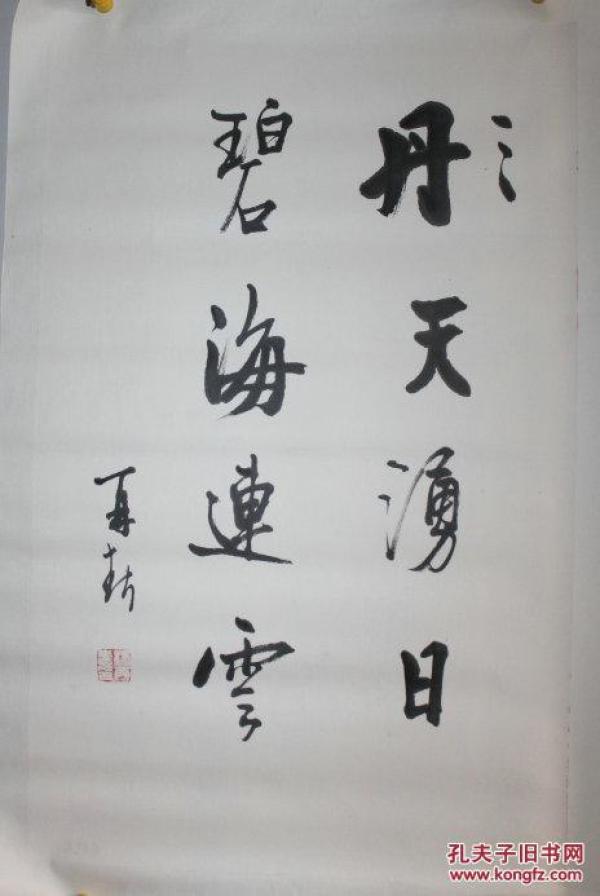 彤天湧日
碧海連雲
孔夫子旧书网
www.kongfz.com